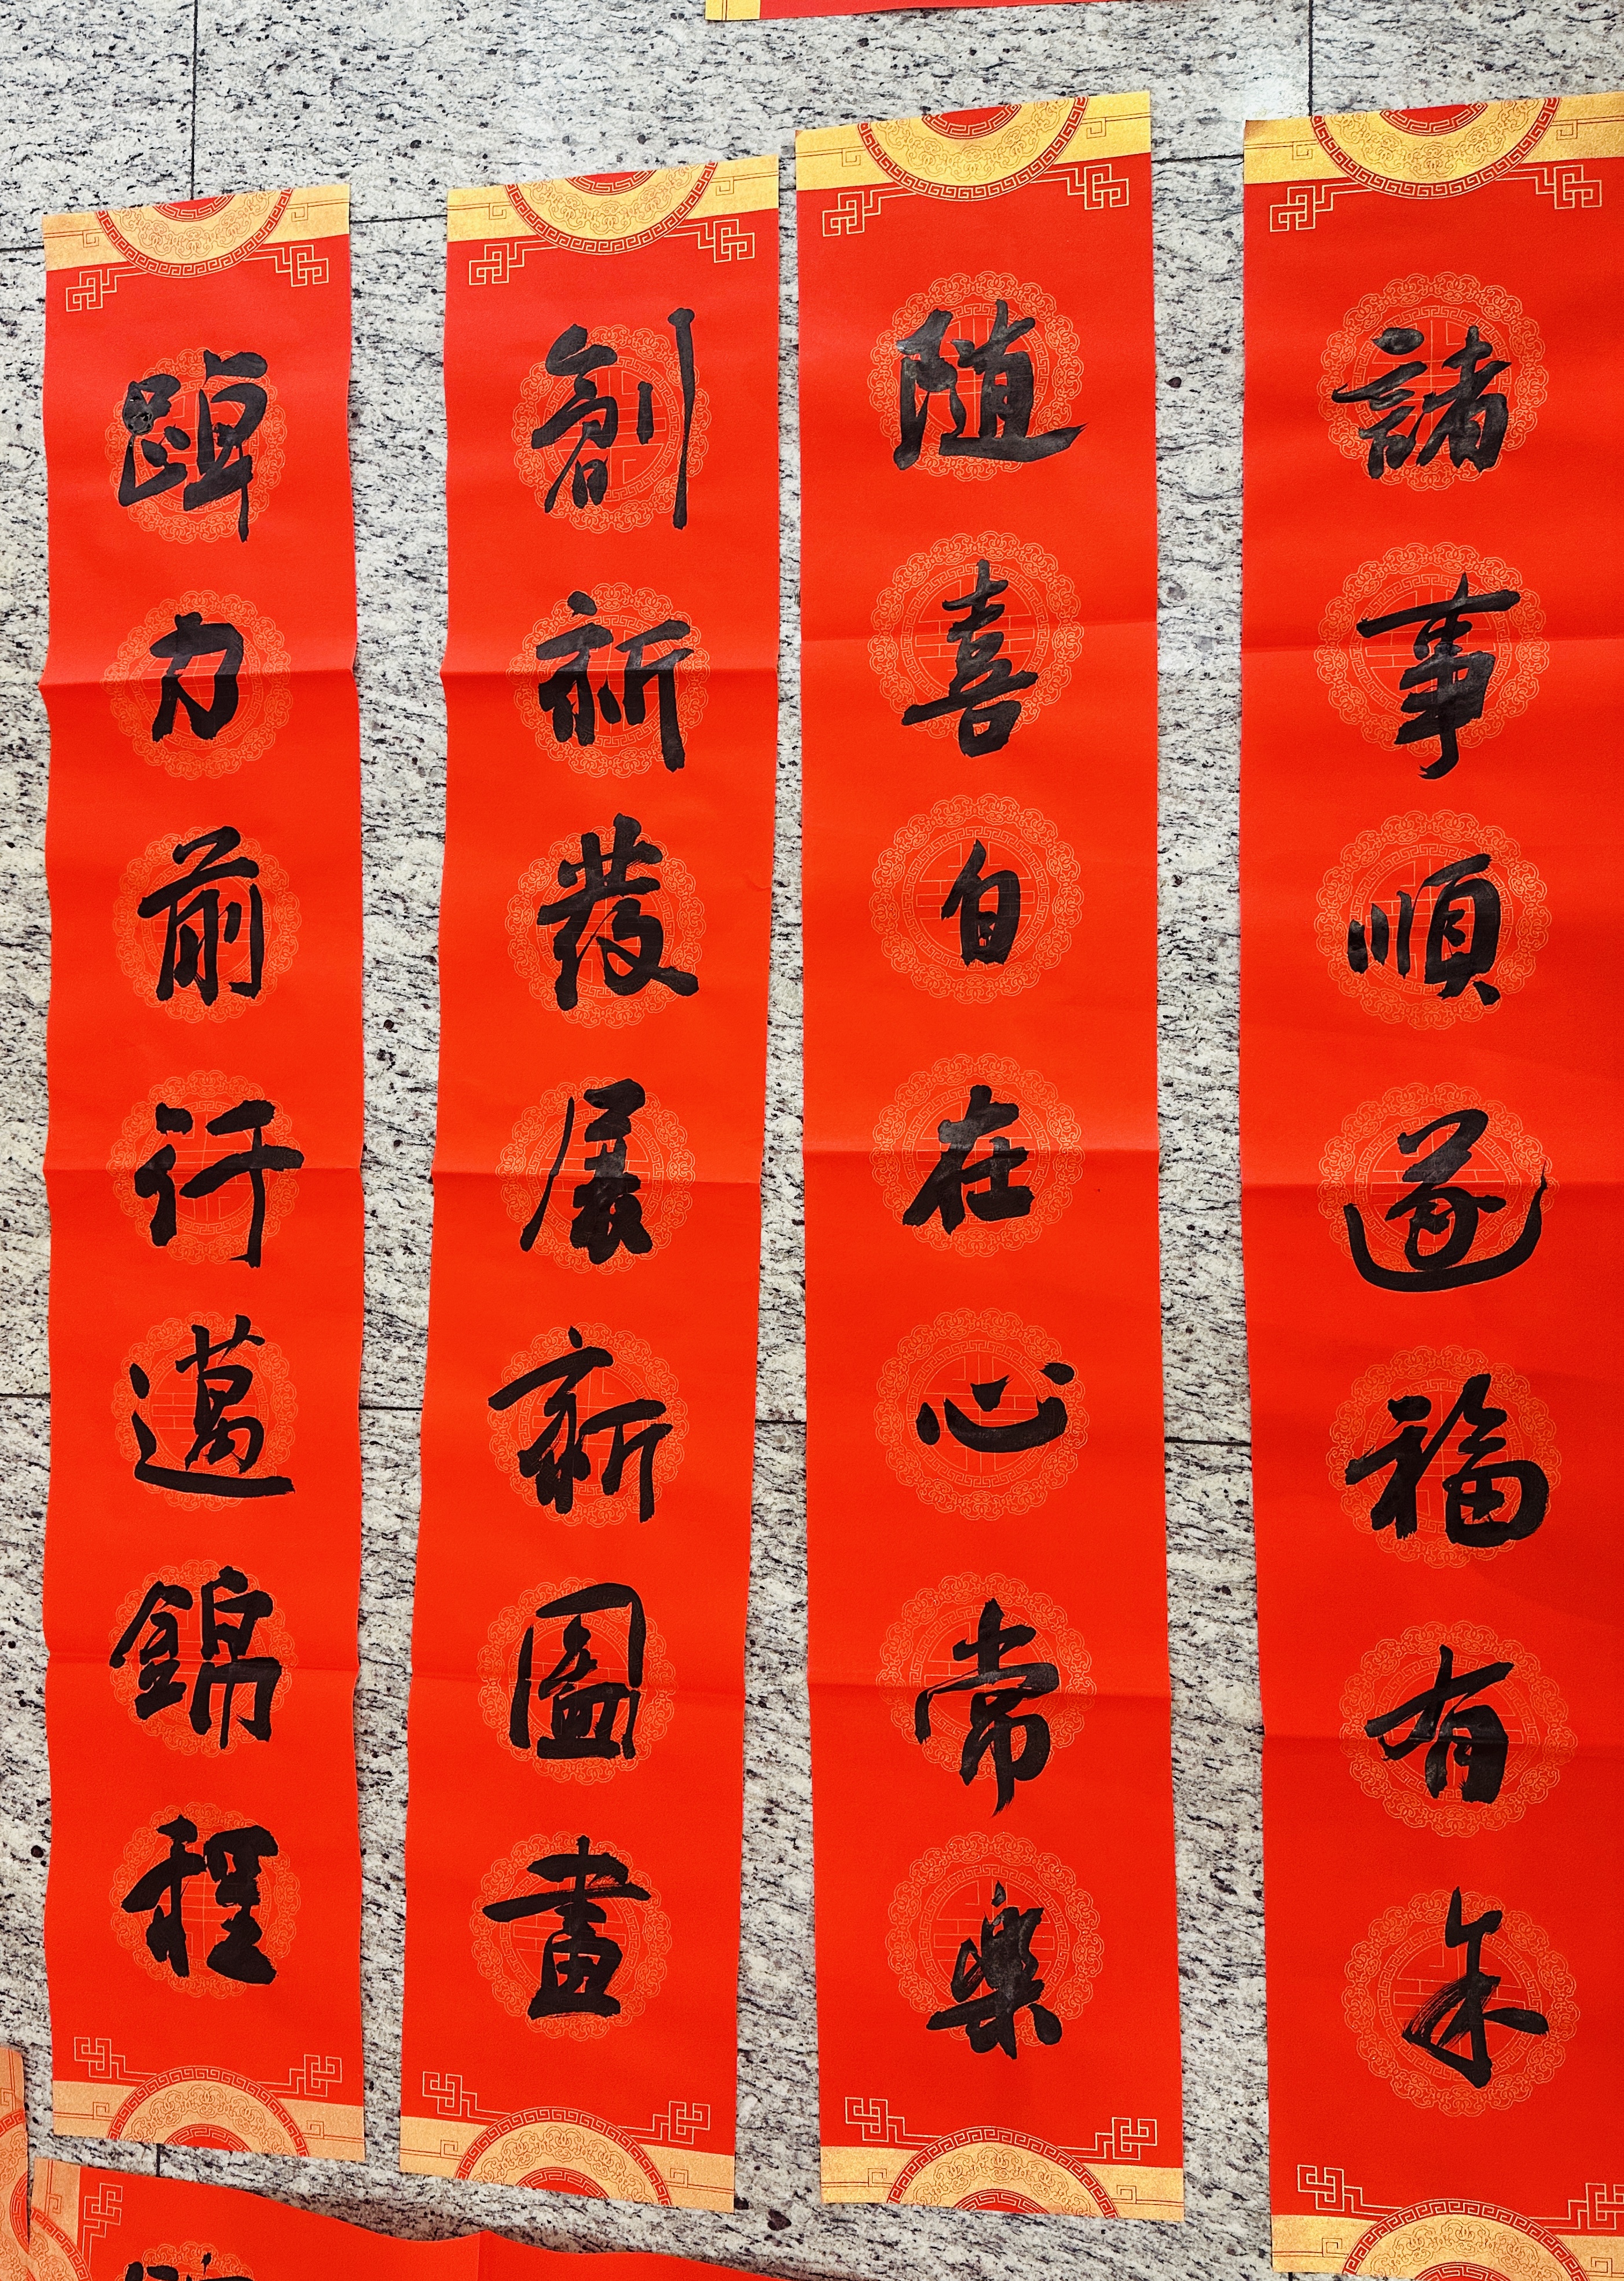 諸事順遂福有余
随喜自在心常樂
創新發展新圖畫
踔力前行邁錦程